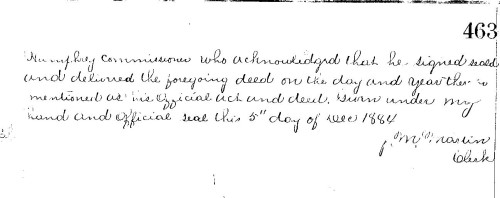 463
Humphrey Commissioner who acknowledged that he signed seald
and deliverd the foregoing deed on the day and year
mentioned as his official act and deed. Given under my
hand and official seal this 5" day of Dec 1884
Clerk